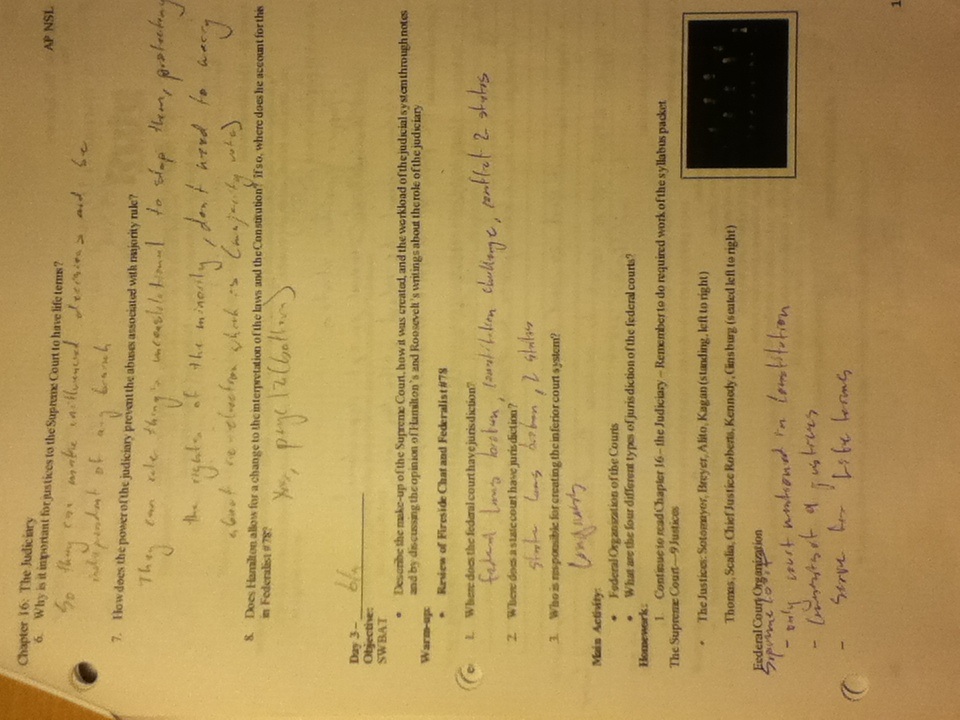 Chapter 16: The Judiciary
AP NSL
6. Why is it important for justices to the Supreme Court to have life terms?
So they can make uninfluenced decisions and be
independent of any branch
7. How does the power of the judiciary prevent the abuses associated with majority rule?
They can rule things unconstitutional to stop them, protecting
the rights of the minority, don't need to worry
about re-election which is (majority vote)
8. Does Hamilton allow for a change to the interpretation of the laws and the Constitution? If so, where does he account for this
in Federalist #78?
Yes, page 12 (bottom)
Day 3 –
Objective:
SWBAT
• Describe the make-up of the Supreme Court, how it was created, and the workload of the judicial system through notes
and by discussing the opinion of Hamilton's and Roosevelt's writings about the role of the judiciary
Warm-up:
• Review of Fireside Chat and Federalist #78
1. Where does the federal court have jurisdiction?
federal laws broken, constitution challenge, conflict 2 states
2. Where does a state court have jurisdiction?
state laws broken, 2 states
3. Who is responsible for creating the inferior court system?
Congress
Main Activity:
• Federal Organization of the Courts
• What are the four different types of jurisdiction of the federal courts?
Homework:
1. Continue to read Chapter 16 – the Judiciary – Remember to do required work of the syllabus packet
The Supreme Court—9 Justices
• The Justices: Sotomayor, Breyer, Alito, Kagan (standing, left to right)
Thomas, Scalia, Chief Justice Roberts, Kennedy, Ginsburg (seated left to right)
Federal Court Organization
Supreme Court
- only court mentioned in Constitution
- Consists of 9 justices
- Serve for Life terms
1